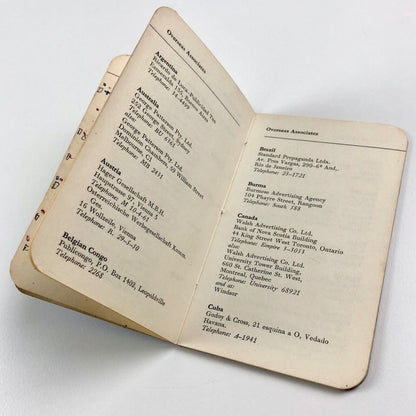 Overseas Associates
Argentina
Ricardo de Luca-Publicidad Tan
Esmeralda 155, Buenos Aires
Telephone: 34-4499
Australia
George Patterson Pty. Ltd.
252 George Street, Sydney
Telephone: BU
also:
George Patterson Pty. Ltd.
Dominion Chambers, 59 William Street
Melbourne, C1
Telephone: MB 2431
Austria
Hager Gesellschaft M.B.H.
Hauptstrasse 97, Vienna 3
Telephone: M
Österreichische Werbegesellschaft Komm.
Ges.
16 Wollzeile, Vienna
Telephone: R. 29-5-10
Belgian Congo
Publicongo, P.O. Box 1402, Leopoldville
Telephone: 2268
Overseas Associates
Brazil
Standard Propaganda Ltda.
Av. Pres Vargas, 290-6° And,
Rio de Janeiro
Telephone: 23-1721
Burma
Burmese Advertising Agency
104 Phayre Street, Rangoon
Telephone: South 188
Canada
Walsh Advertising Co. Ltd.
Bank of Nova Scotia Building
44 King Street West Toronto, Ontario
Telephone: Empire 3-1051
also:
Walsh Advertising Co. Ltd.
University Tower Building,
660 St. Catherine St. West,
Montreal, Quebec
Telephone: University 68921
and at:
Windsor
Cuba
Godoy & Cross, 21 esquina a O, Vedado
Havana.
Telephone: A-1941